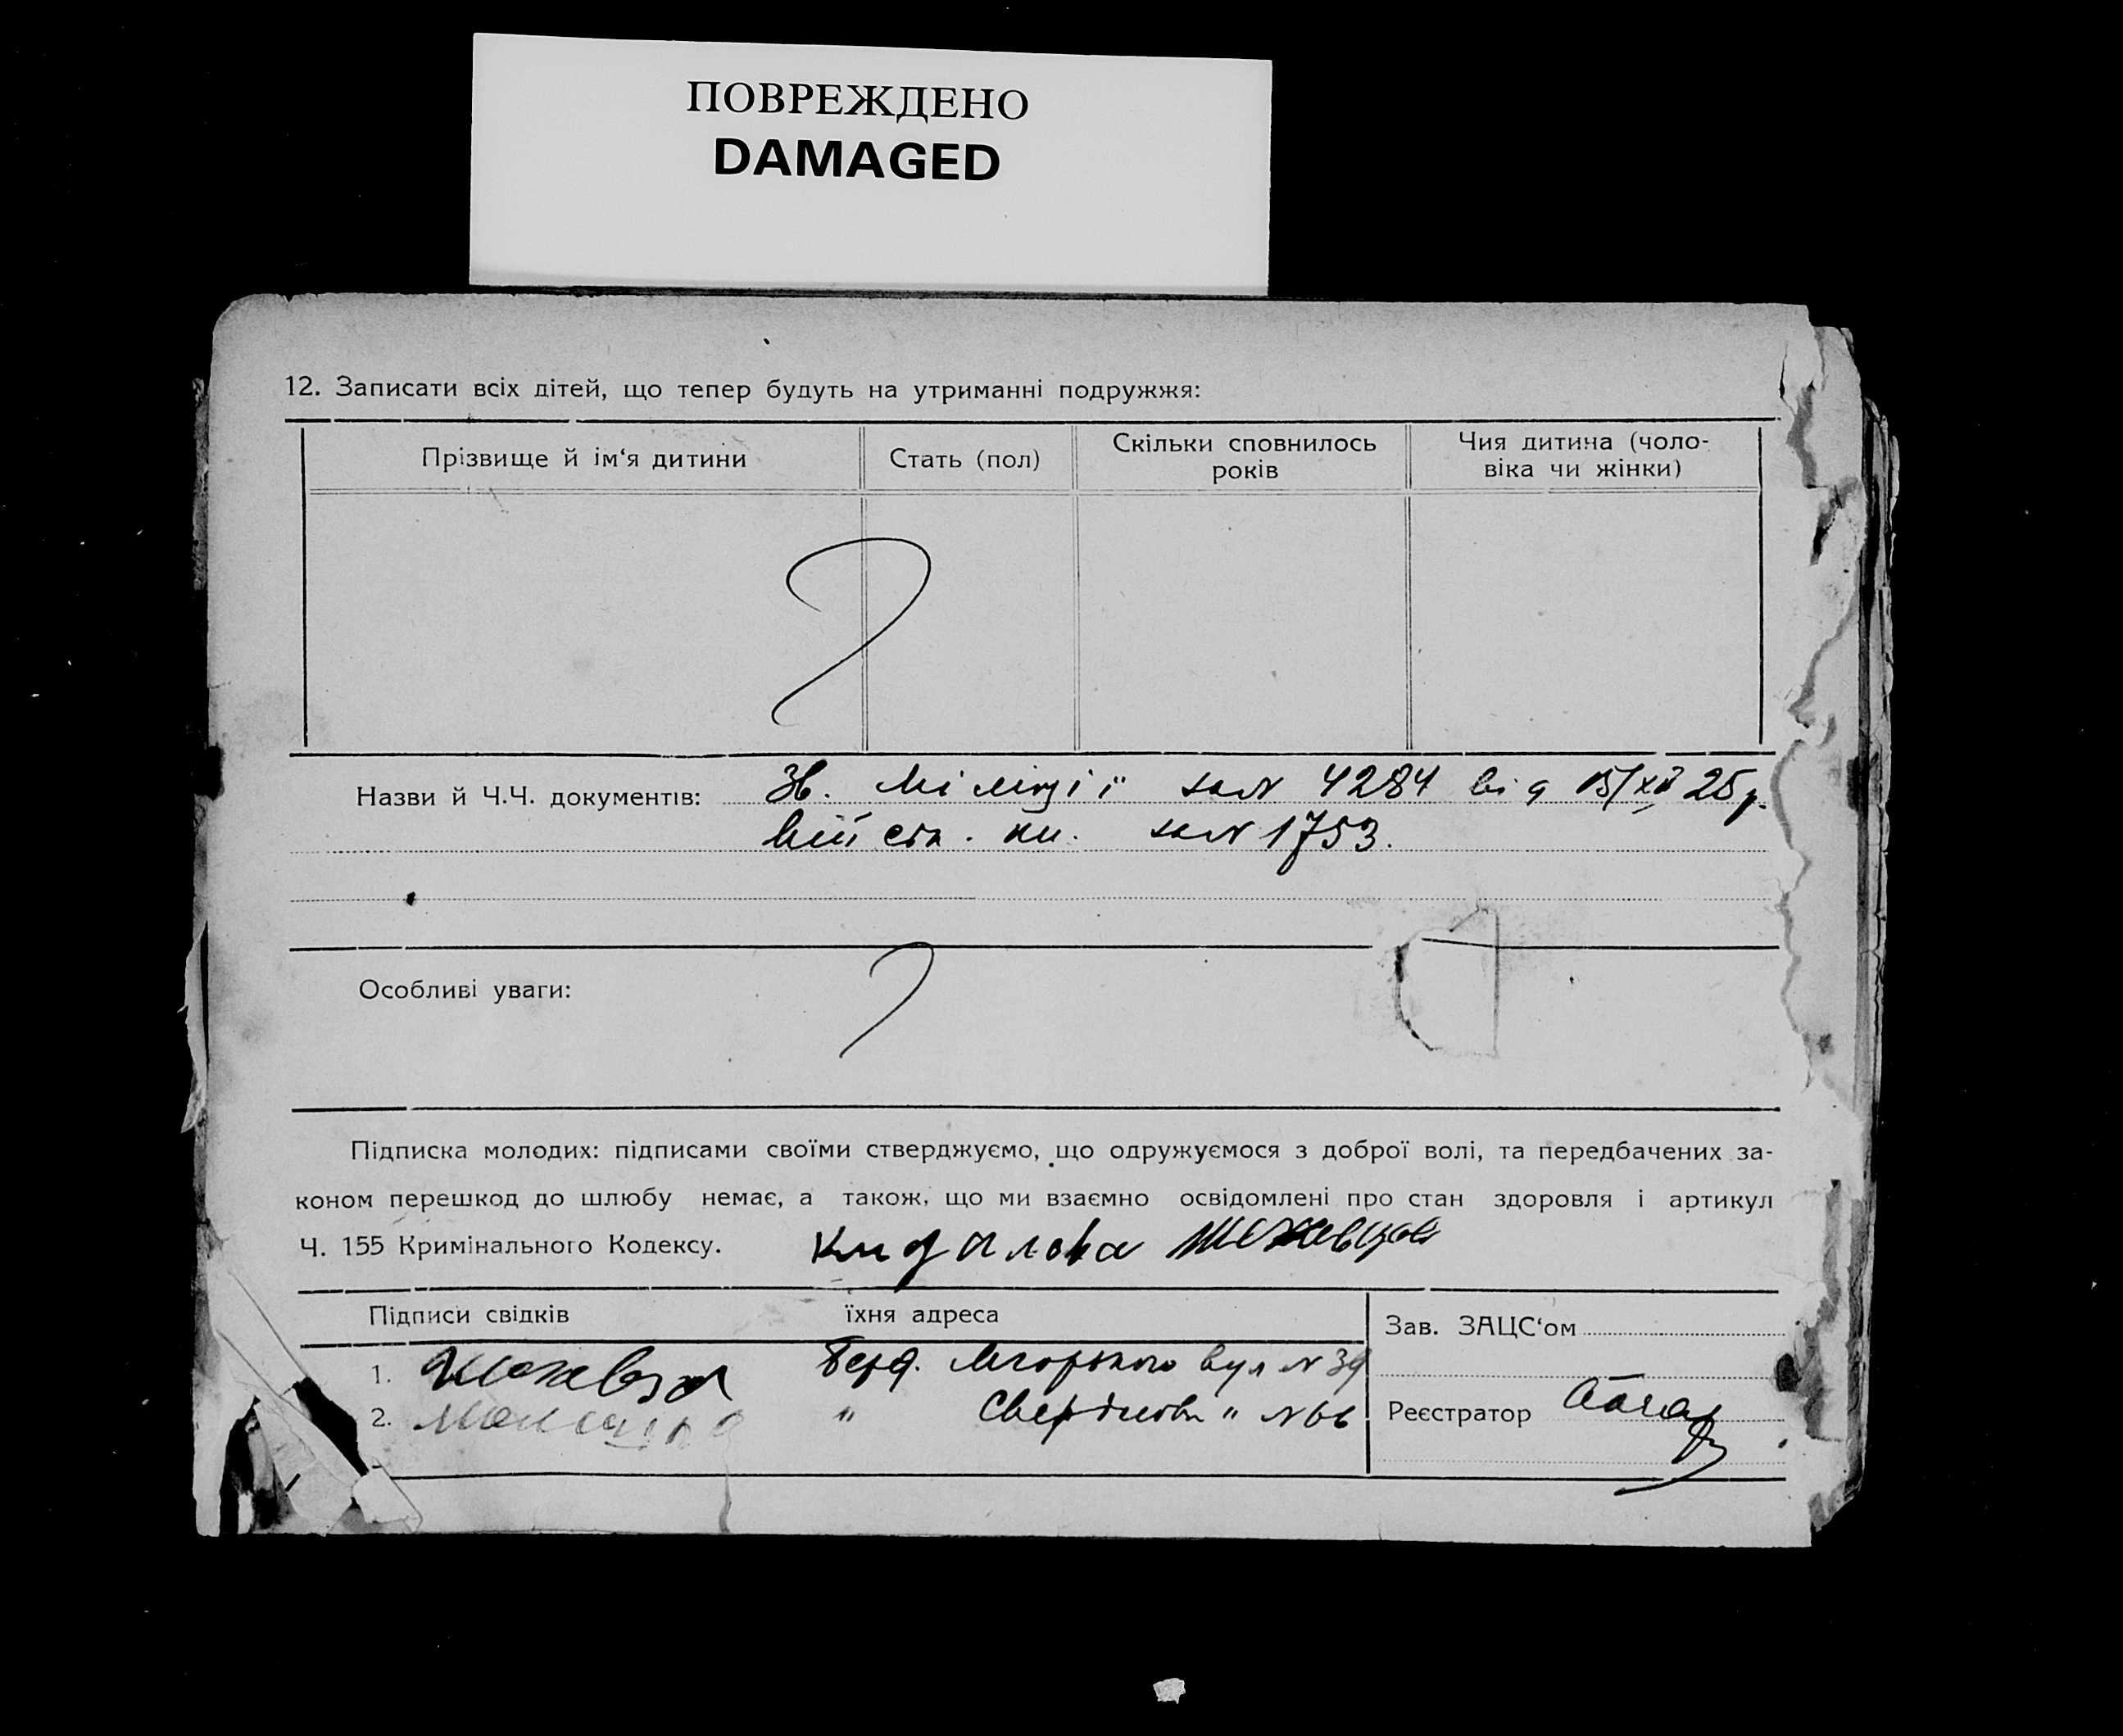 ПОВРЕЖДЕНО
DAMAGED
12. Записати всіх дітей, що тепер будуть на утриманні подружжя:
Прізвище й ім‘я дитини Стать (пол) Скільки сповнилось років Чия дитина (чоловіка чи жінки)
Назви й Ч.Ч. документів: Зв. Міліції за N 4284 від 15/XII 25 р.
Військ. кн. за N 1753.
Особливі уваги:
Підписка молодих: підписами своїми стверджуємо, що одружуємося з доброї волі, та передбачених за-
коном перешкод до шлюбу немає, а також, що ми взаємно освідомлені про стан здоровля і артикул
Ч. 155 Кримінального Кодексу. Кидалова
Підписи свідків їхня адреса Зав. ЗАЦС‘ом
1. Берд. вул N 39
2. " " N 66 Реєстратор